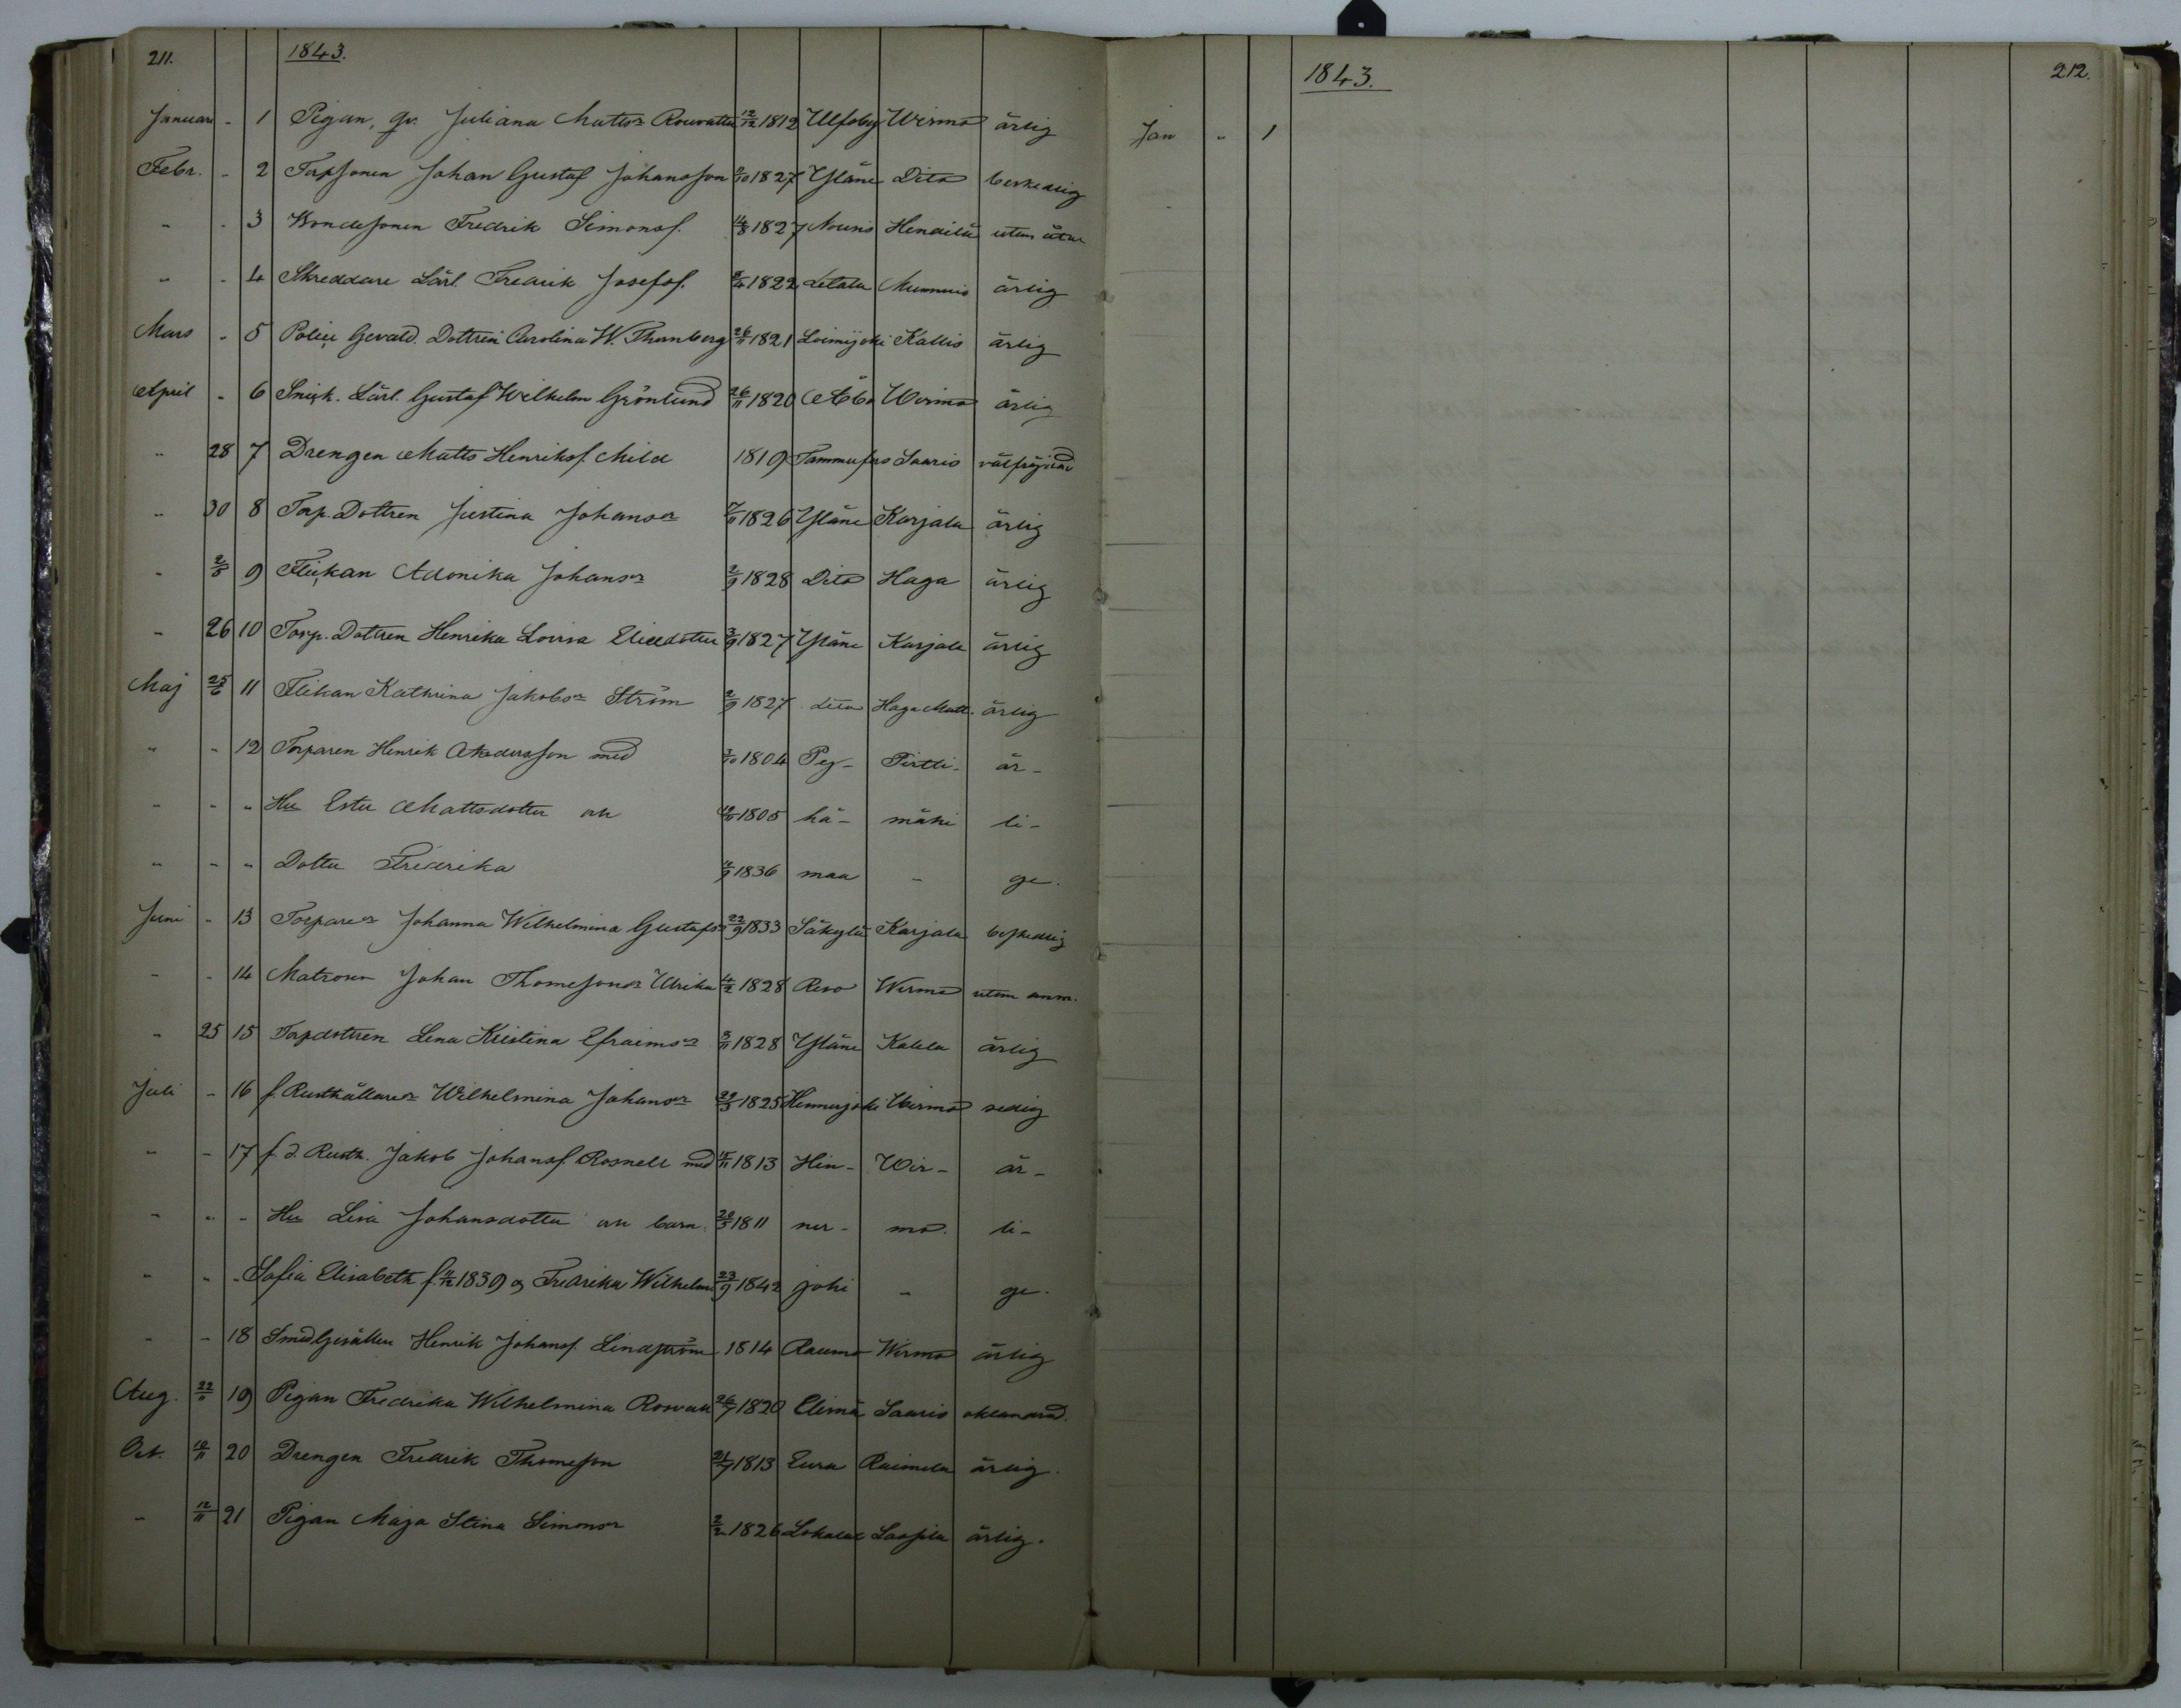 211. 1843.
Januari - 1 Pigan, qv. Juliana Mattsr 12/12 1812 Ulfsby Wirmo ärlig
Febr. - 2 Torpsonen Johan Gustaf Johansson 2/10 1827 Yläne Dito beskedlig
- - 3 Bondesonen Fredrik Simonsf. 14/8 1827 Nousis utan
- - 4 Skreddare Lärl. Fredrik Josefsf. 1822 Letala ärlig
Mars - 5 Gevald. Dottren Carolina W. Thunberg 26/11 1821 Loimijoki ärlig
April - 6 Snick. Lärl. Gustaf Wilhelm Grönlund 26/11 1820 Åbo Wirmo ärlig
" 28 7 Drengen Matts Henriksf. Mild 1819 Tammerfors Saaris välfrejdad
" 30 8 Torp. Dottren Justina Johansr 7/11 1826 Yläne Karjala ärlig
- 2/5 9 Flickan Adonika Johansr 2/9 1828 Dito Haga ärlig
- 26 10 Torp. Dottren Henrika Lovisa 3/9 1827 Yläne Karjala ärlig
Maj 25/6 11 Flikan Kathrina Jakobsr Ström 2/9 1827 dito Haga Matt. ärlig
" - 12 Torparen Henrik Andersson med 7/10 1804 Pey- Pirtti- är-
- - " Hu Ester Mattsdotter o 1805 hä- mäki li-
" - " Dotter Fredrika 1836 maa - ge.
Juni - 13 Torparer Johanna Wilhelmina Gustafsr 22/9 1833 Säkylä Karjala beskedlig
- - 14 Matrosen Johan Thomesons Ulrika 1828 Reso Wirmo utan anm.
- 25 15 Torpdottren Lena Kristina Efraimsr 3/11 1828 Yläne ärlig
Juli - 16 f. Rusthållarer Wilhelmina Johansr 29/5 1825 Hinnerjoki Wirmo sedig
" - 17 f. d. Rusth. Jakob Johansf. Rosnell med 1813 Hin- Wir- är-
" " - Hu Lisa Johansdotter o barn 20/5 1811 ner- mo. li-
" " - Sofia Elisabeth f. 11/12 1839 o Fredrika Wilhelm. 23/9 1842 joki - ge.
- - 18 Smidgesällen Henrik Johansf. Lindström 1814 Raumo Wirmo ärlig
Aug. 22/8 19 Pigan Fredrika Wilhelmina 26/7 1820 Elimä Saaris oklandrad.
Oct. 12/11 20 Drengen Fredrik Thomeson 21/7 1813 Eura Raimela ärlig.
- 12/11 21 Pigan Maja Stina Simonsr 2/2 1826 Lokalax Laapila ärlig.
1843. 212.
Jan " 1